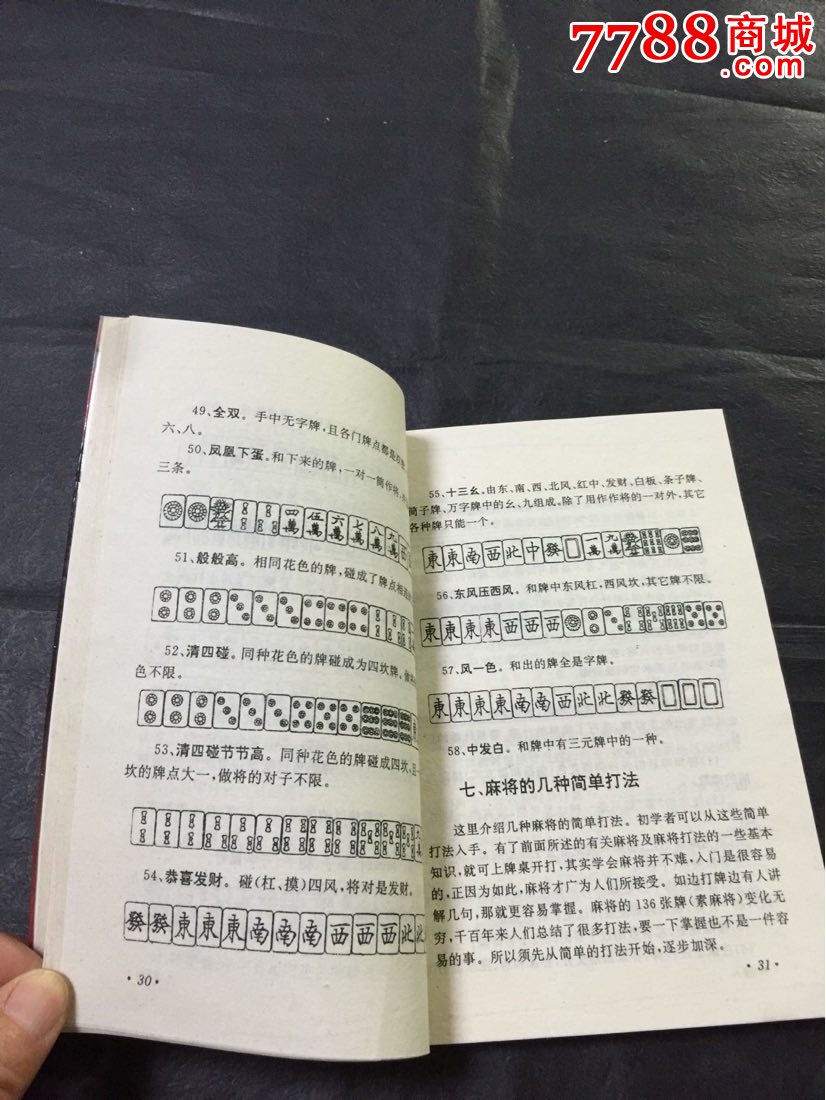 7788商城
49、全双。手中无字牌,且各门牌点都是
六、八。
50、凤凰下蛋。和下来的牌,一对一筒作将,
三条。
四萬 伍萬 六萬 七萬 八萬 九萬 西
51、般般高。相同花色的牌,碰成了牌点相
52、清四碰。同种花色的牌碰成为四坎牌。
色不限。
53、清四碰节节高。同种花色的牌碰成四坎,且
坎的牌点大一,做将的对子不限。
54、恭喜发财。碰(杠、摸)四风,将对是发财。
發 發 東 東 東 南 南 南 西 西 西 北 北
·30·
55、十三幺。由东、南、西、北风、红中、发财、白板、条子牌、
筒子牌、万字牌中的幺、九组成。除了用作作将的一对外,其它
各种牌只能一个。
東 東 南 西 北 中 發 一萬 九萬
56、东风压西风。和牌中东风杠,西风坎,其它牌不限。
東 東 東 東 西 西 西
57、风一色。和出的牌全是字牌。
東 東 東 東 南 南 西 北 北 發 發
58、中发白。和牌中有三元牌中的一种。
七、麻将的几种简单打法
这里介绍几种麻将的简单打法。初学者可以从这些简单
打法入手。有了前面所述的有关麻将及麻将打法的一些基本
知识,就可上牌桌开打,其实学会麻将并不难,入门是很容易
的,正因为如此,麻将才广为人们所接受。如边打牌边有人讲
解几句,那就更容易掌握。麻将的136张牌(素麻将)变化无
穷,千百年来人们总结了很多打法,要一下掌握也不是一件容
易的事。所以须先从简单的打法开始,逐步加深。
·31·